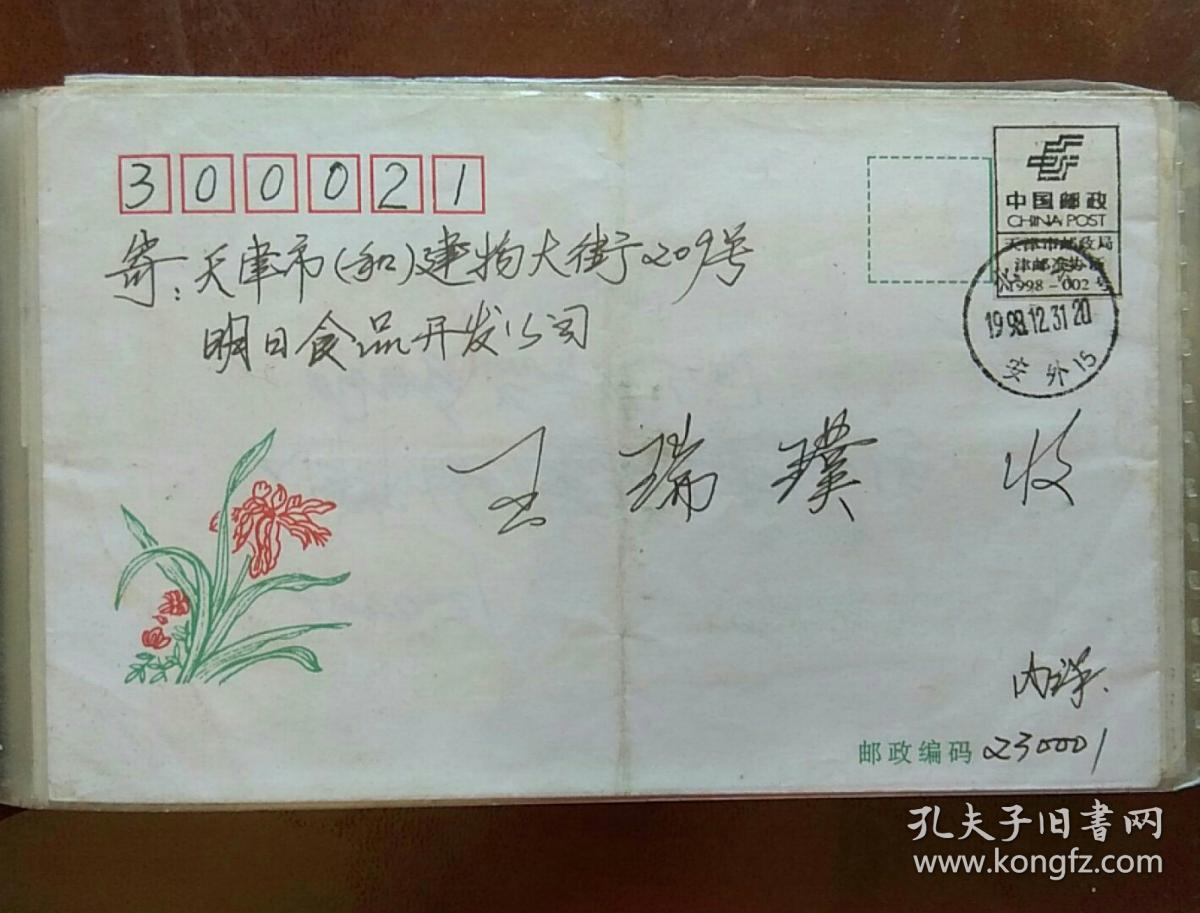 300021
寄:天津市(和)建物大街209号
明日食品开发公司
王瑞璞 收
中国邮政
CHINA POST
天津市邮政局
津邮准协字
1998-002号
1998.12.31 20
安外15
内详.
邮政编码 230001
孔夫子旧書网
www.kongfz.com